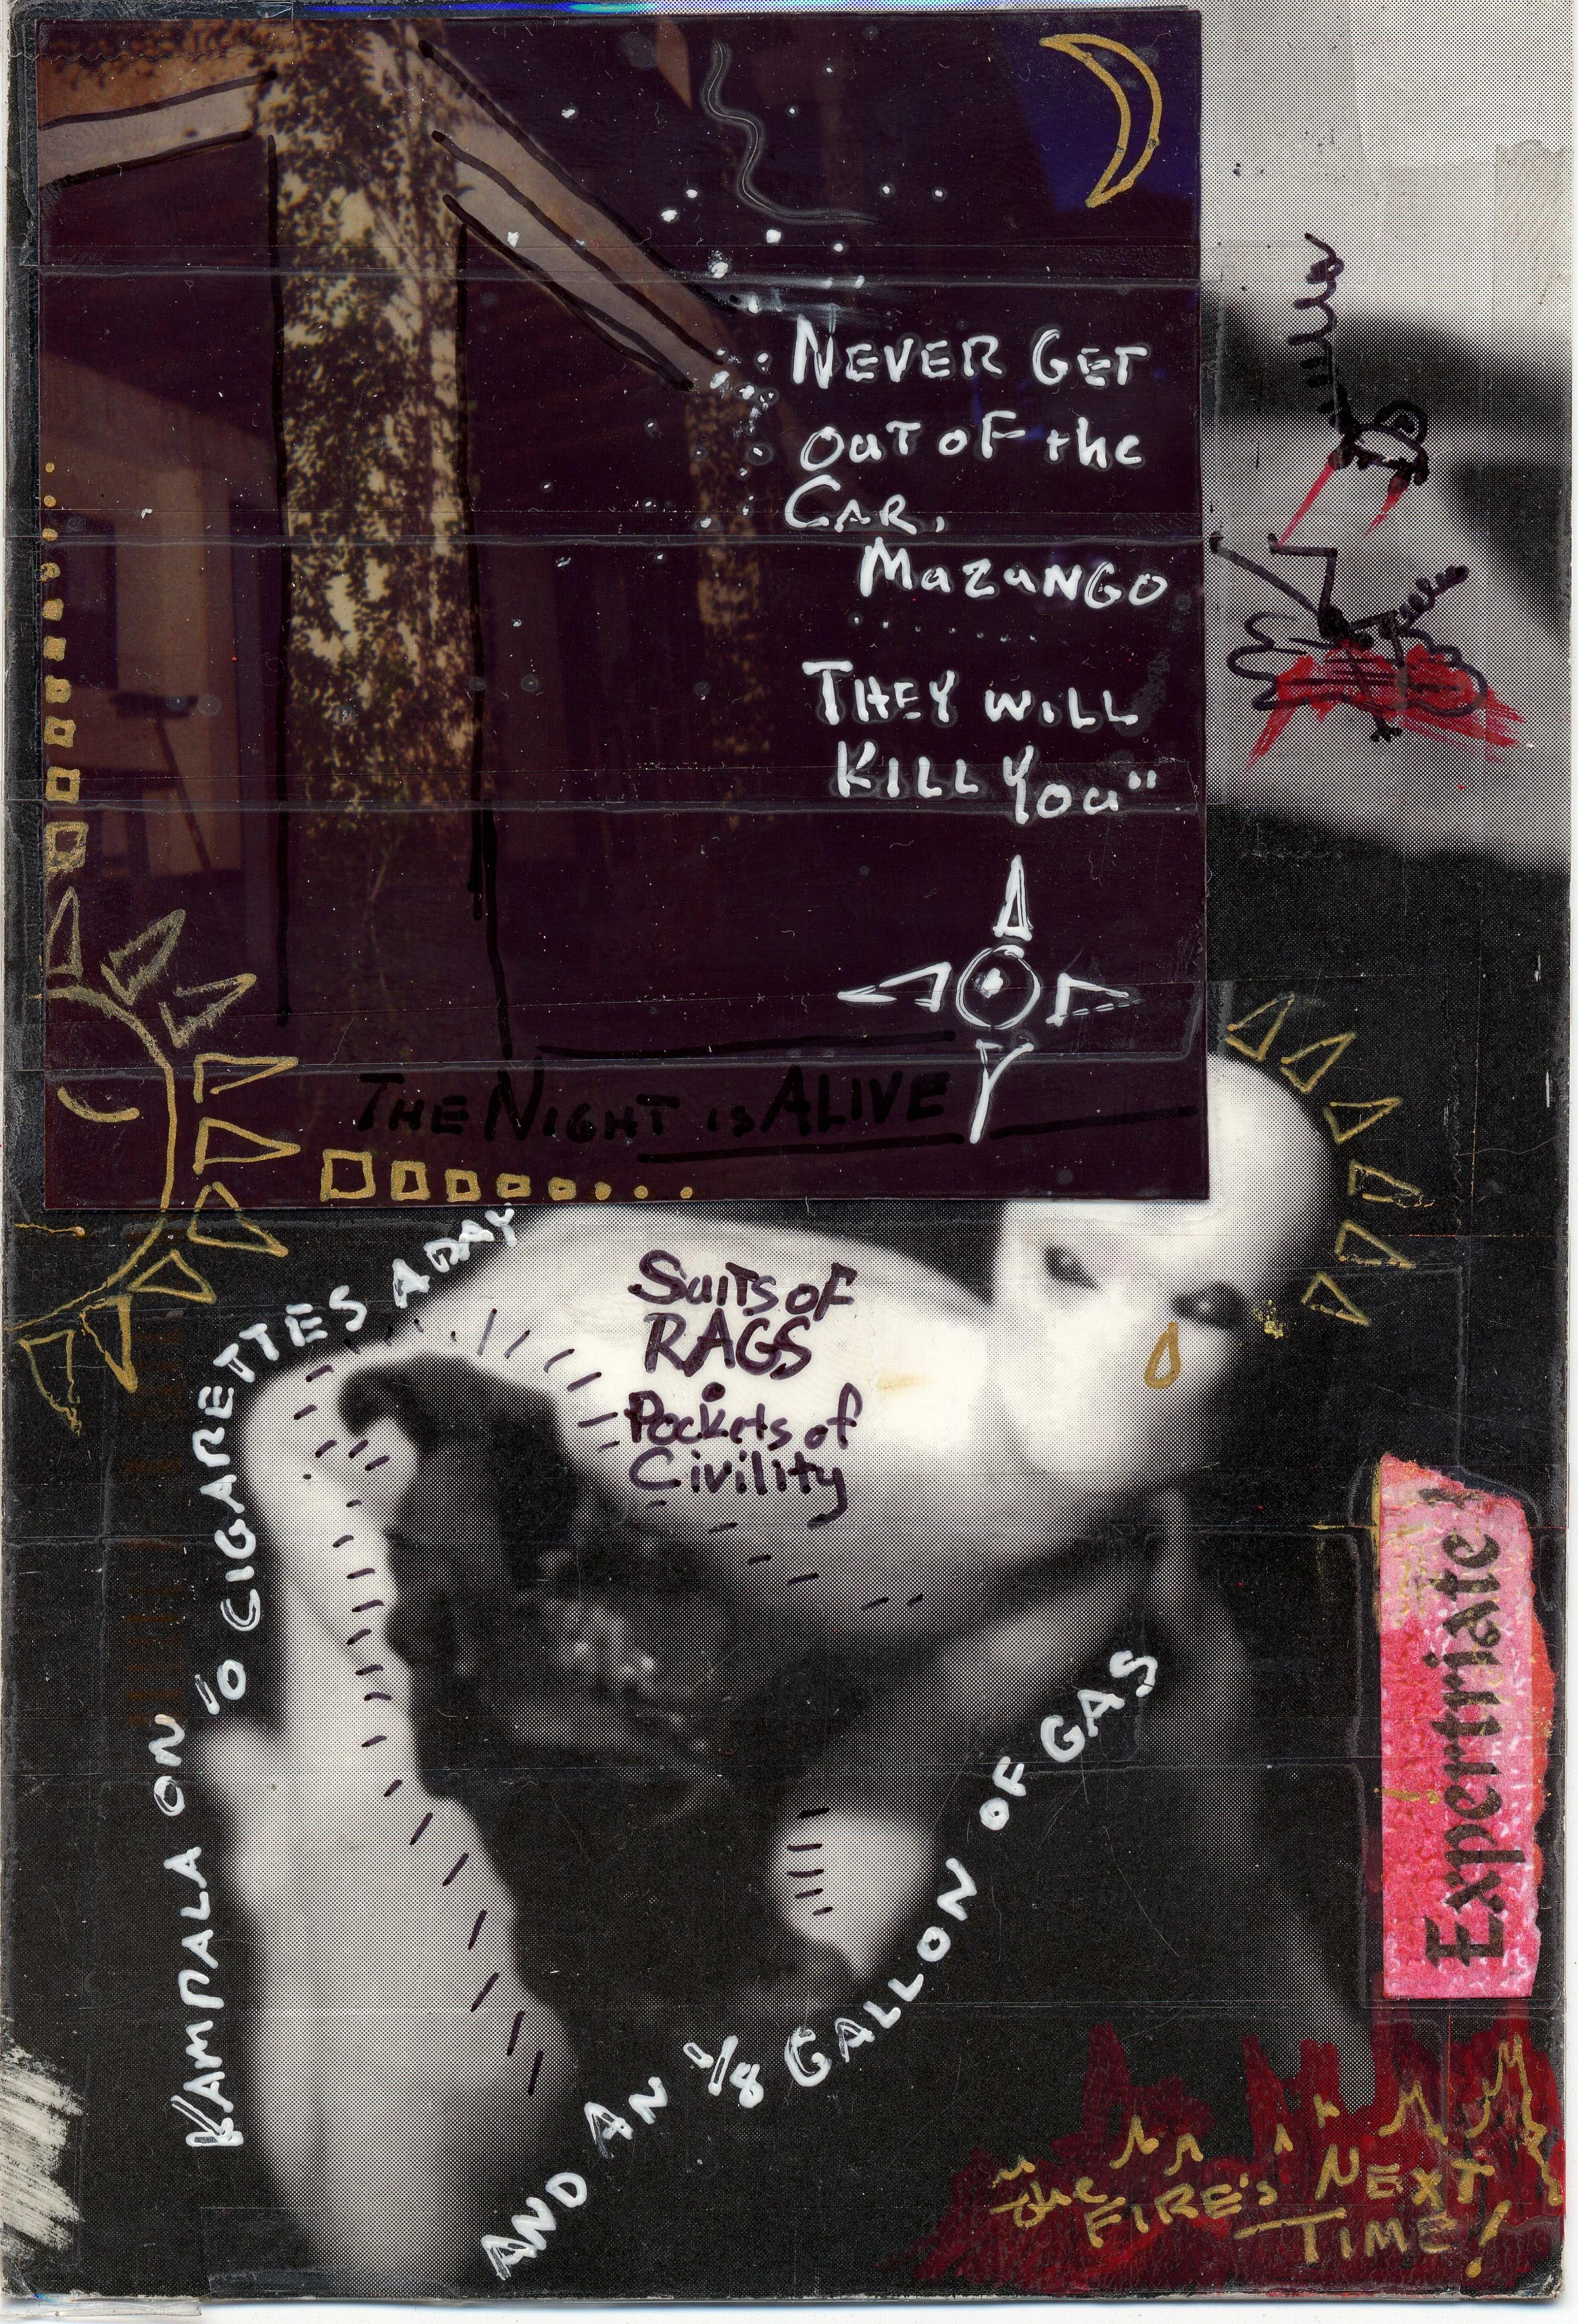 NEVER GET
OUT OF the
CAR,
MaZuNGO
THEY WiLL
KiLL YOU"
THE NIGHT is ALIVE
KAMPALA ON 10 CIGARETTES A DAY
SuiTS OF
RAGS
Pockets of
Civility
AND AN 1/8 GALLON OF GAS
Expertriate
the
FIRE's NEXT
TIME!